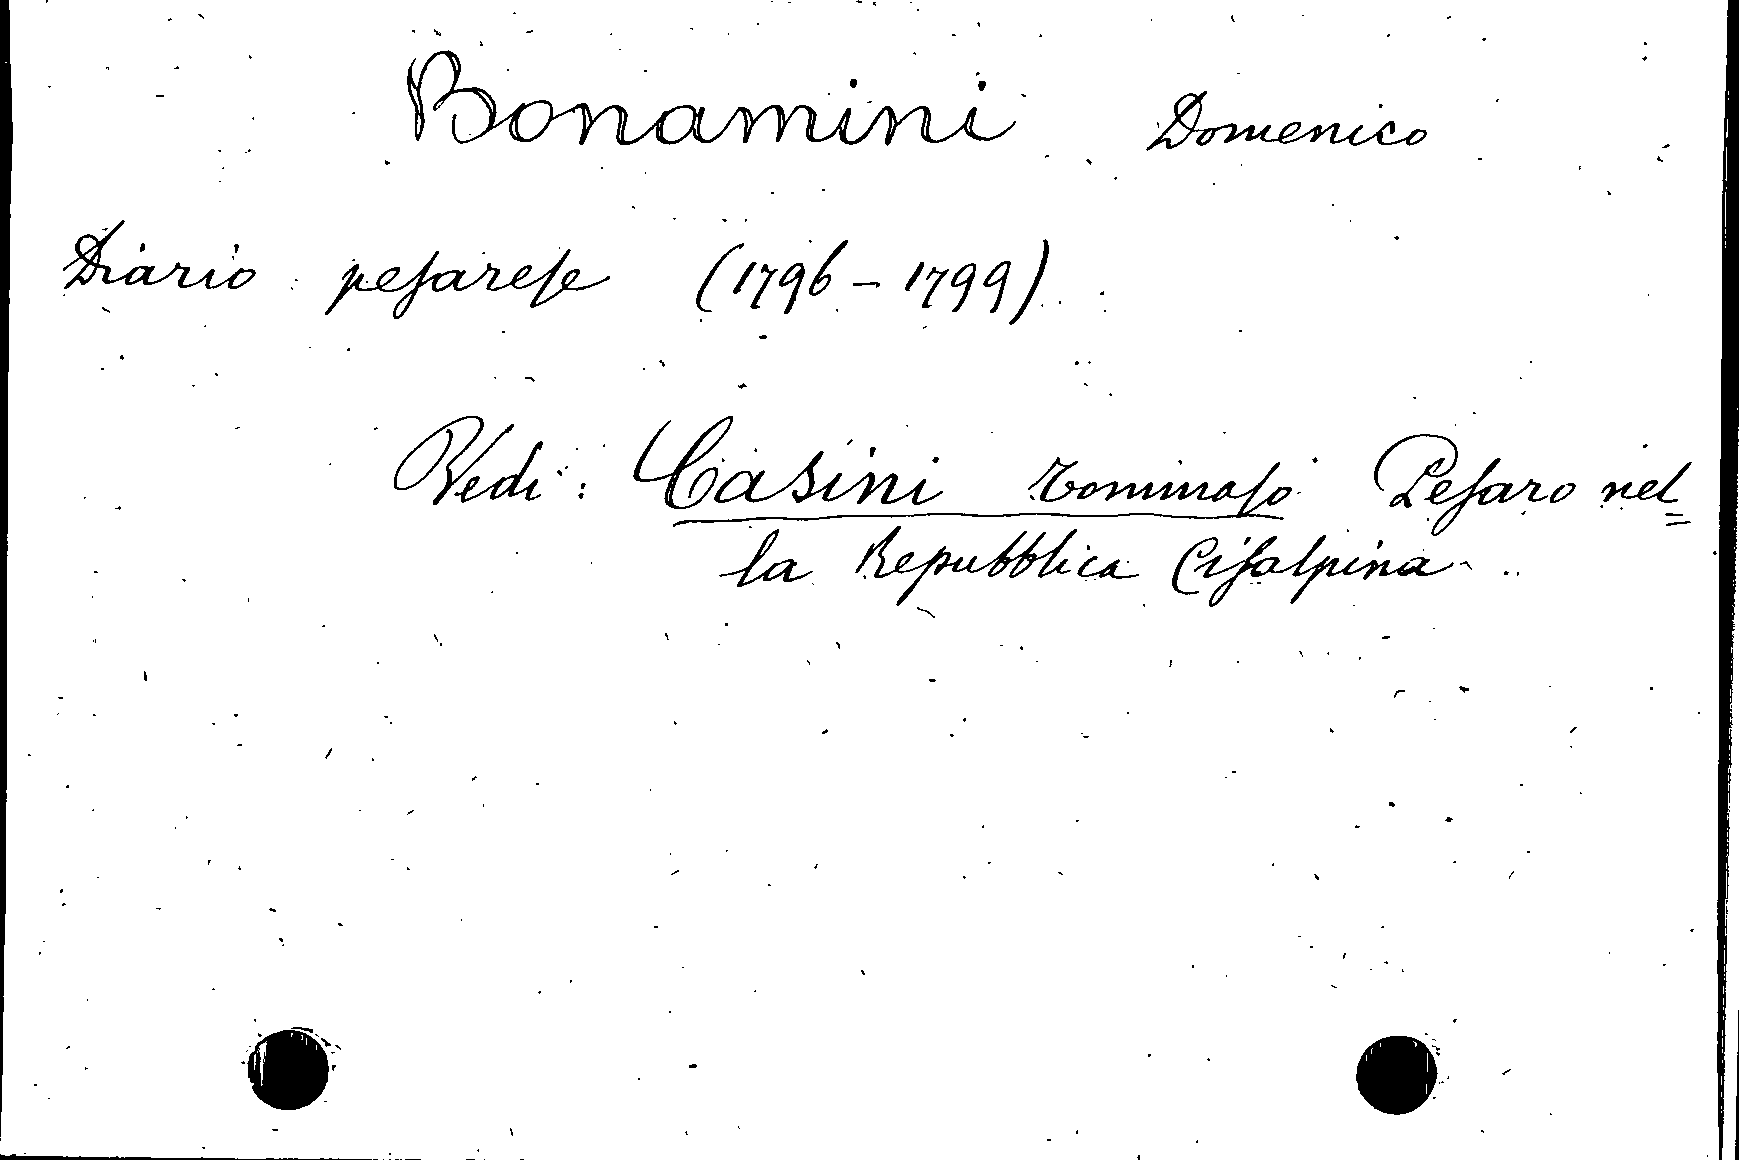 Bonamini Domenico
Diario pesarese (1796-1799)
Vedi: Casini Tommaso Pesaro nel=
la Repubblica Cisalpina